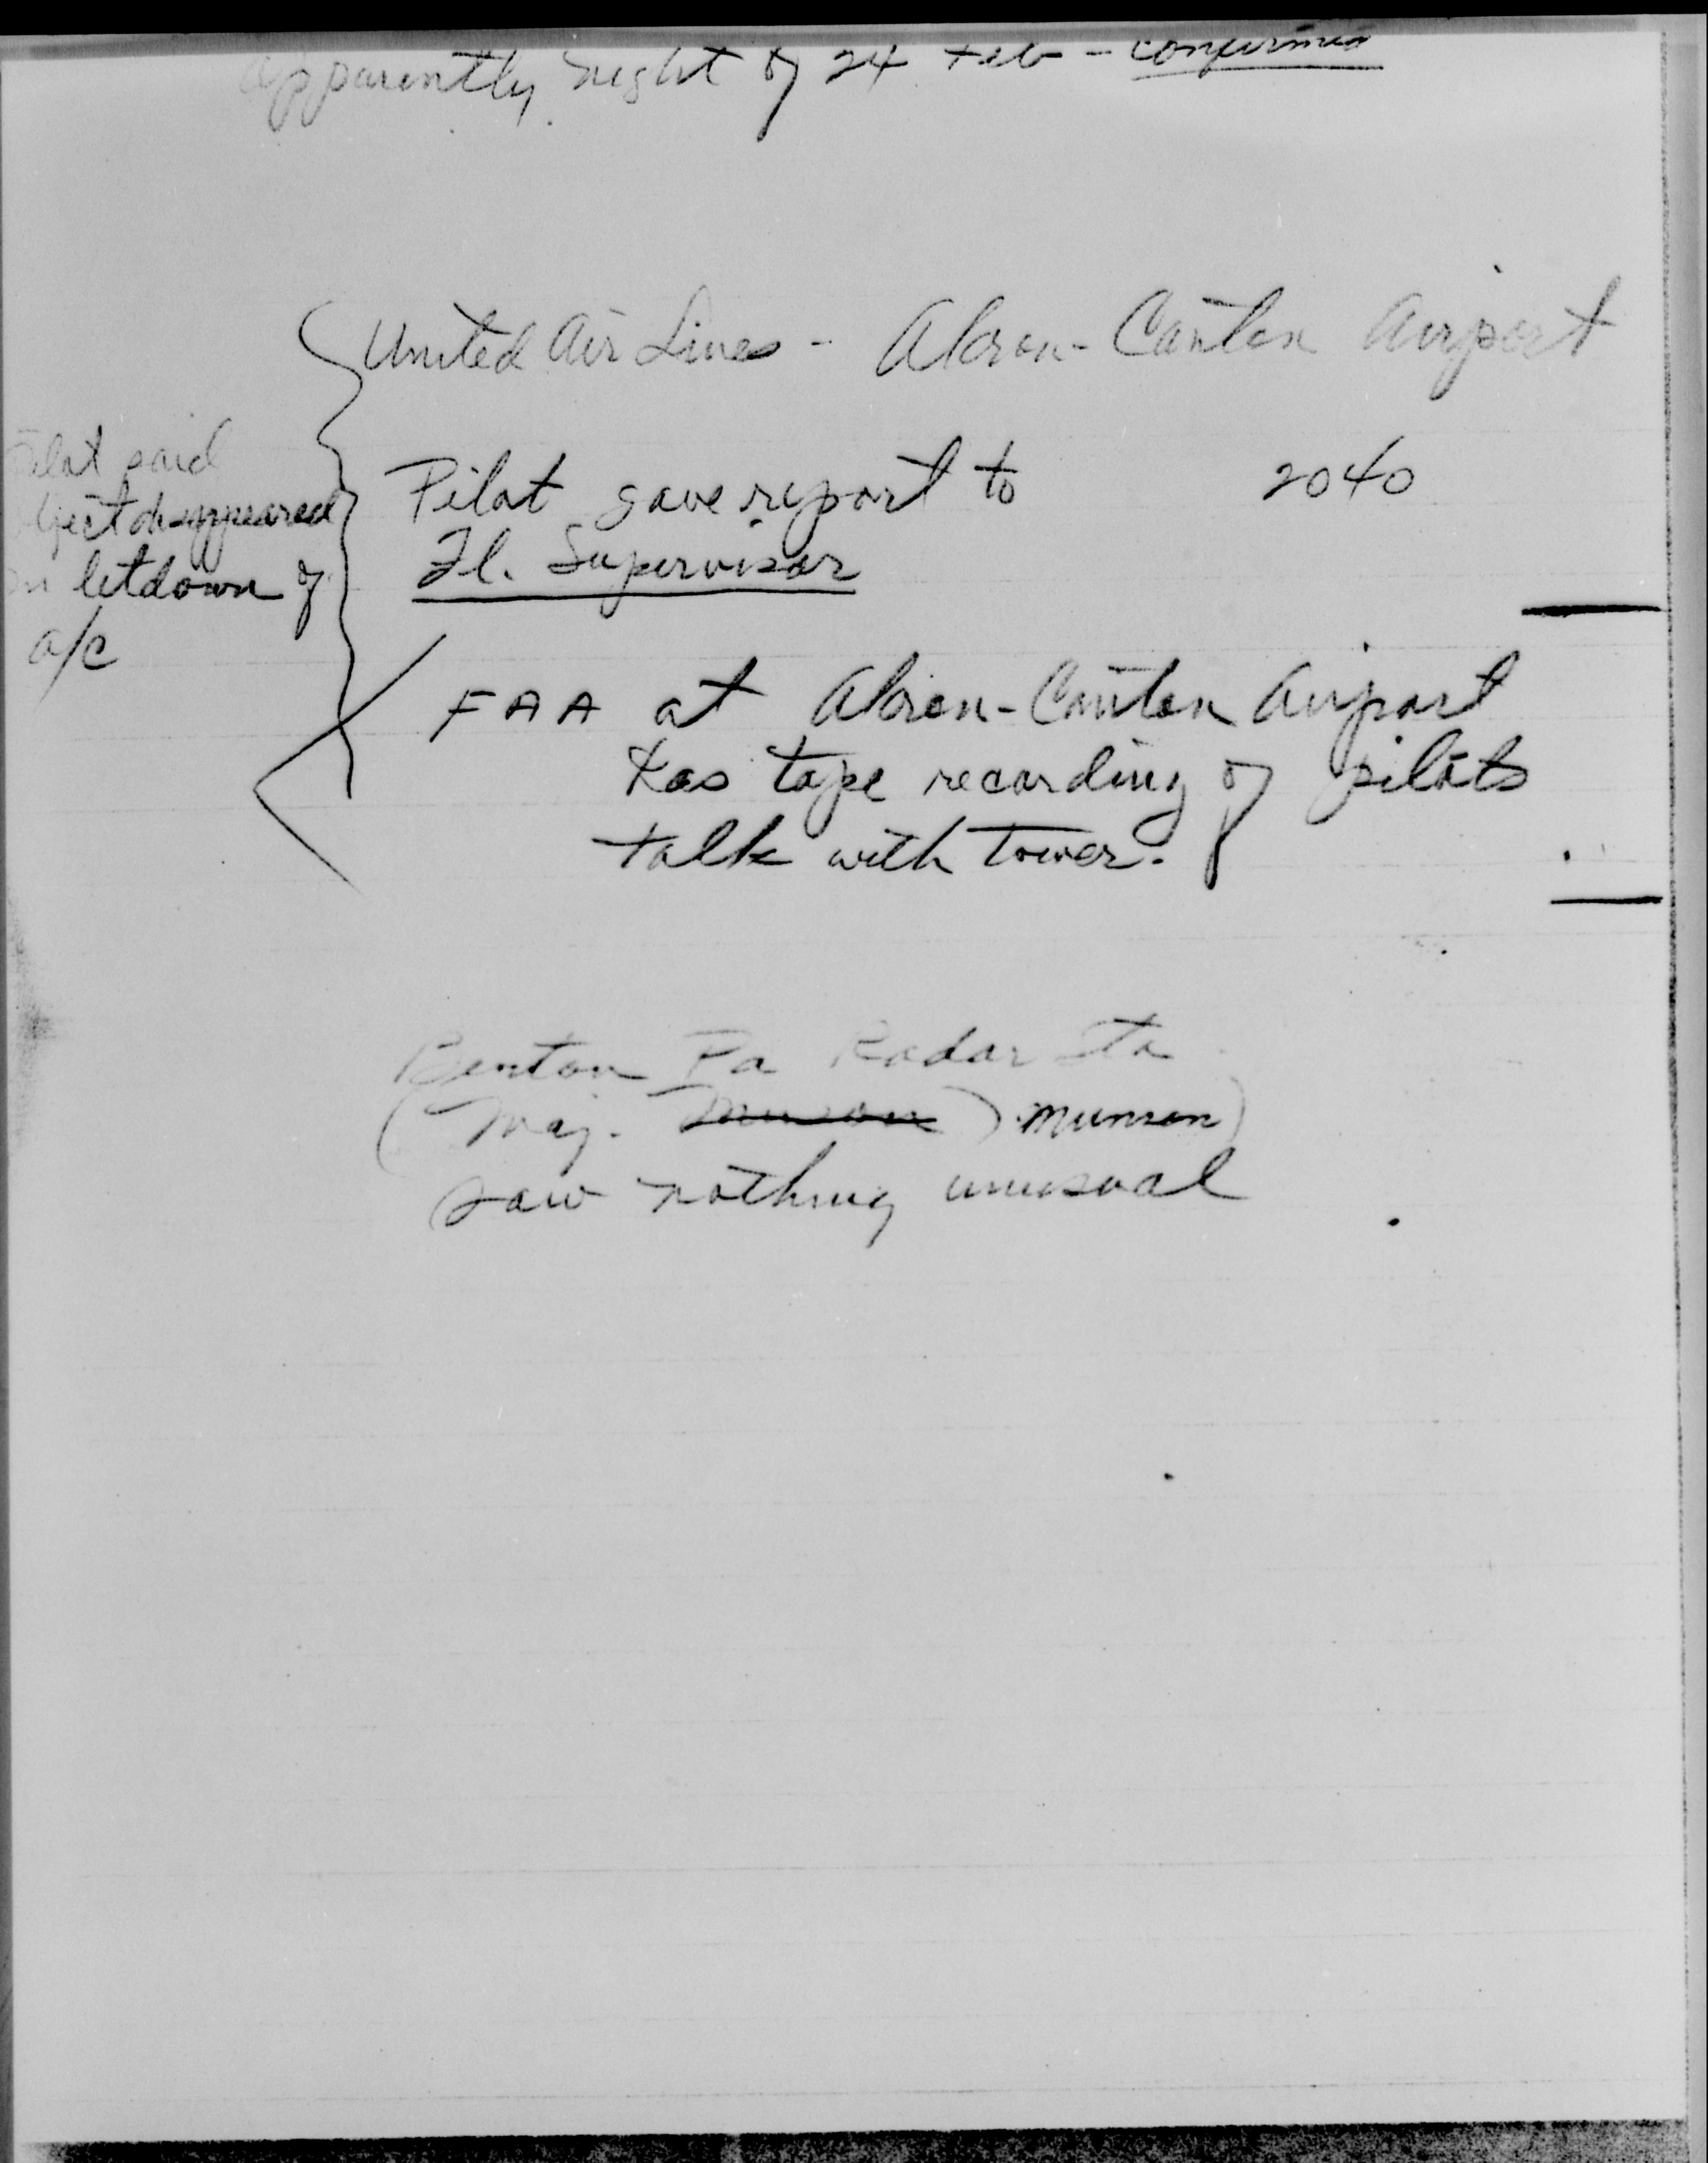 apparently night of 24 Feb - confirmed
United Air Lines - Akron-Canton Airport
Pilot said
object disappeared
on letdown of
a/c
Pilot gave report to 2040
Fl. Supervisor
FAA at Akron-Canton Airport
has tape recording of pilots
talk with tower.
Benton Pa Radar Sta
(Maj. Munson) Munson)
saw nothing unusual